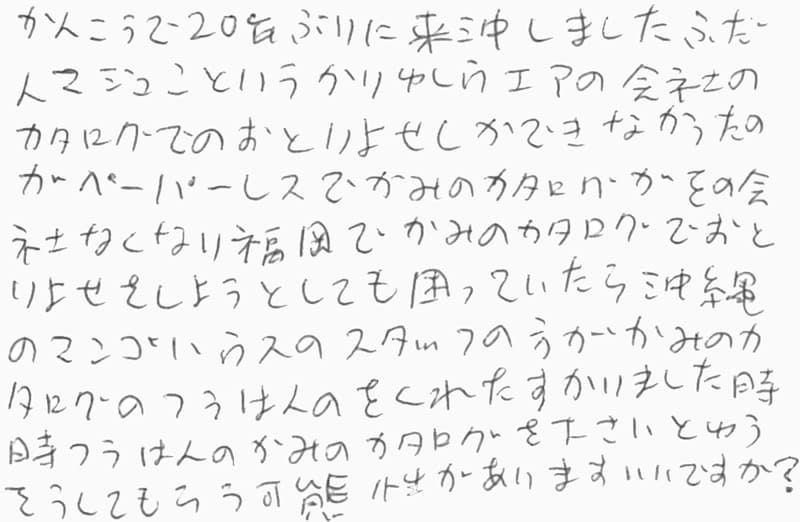 かんこうで20年ぶりに来沖しましたふだ
んマジュンというかりゆしウエアの会社の
カタログでのおとりよせしかできなかったの
がペーパーレスでかみのカタログがその会
社なくなり福岡でかみのカタログでおと
りよせをしようとしても困っていたら沖縄
のマンゴハウスのスタッフの方がかみのカ
タログのつうはんのをくれたすかりました時
時つうはんのかみのカタログを下さいとゆう
そうしてもらう可能性がありますいいですか?